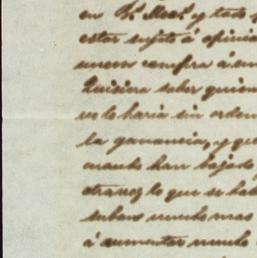 en Sr. Mear. y todo
estar sujeto á opinio
nuevo compra á un
Quisiera saber quien
se lo haria sin orden
la ganancia, y que
cuando han bajado
otra vez lo que se ha
suban mucho mas
á aumentar mucho